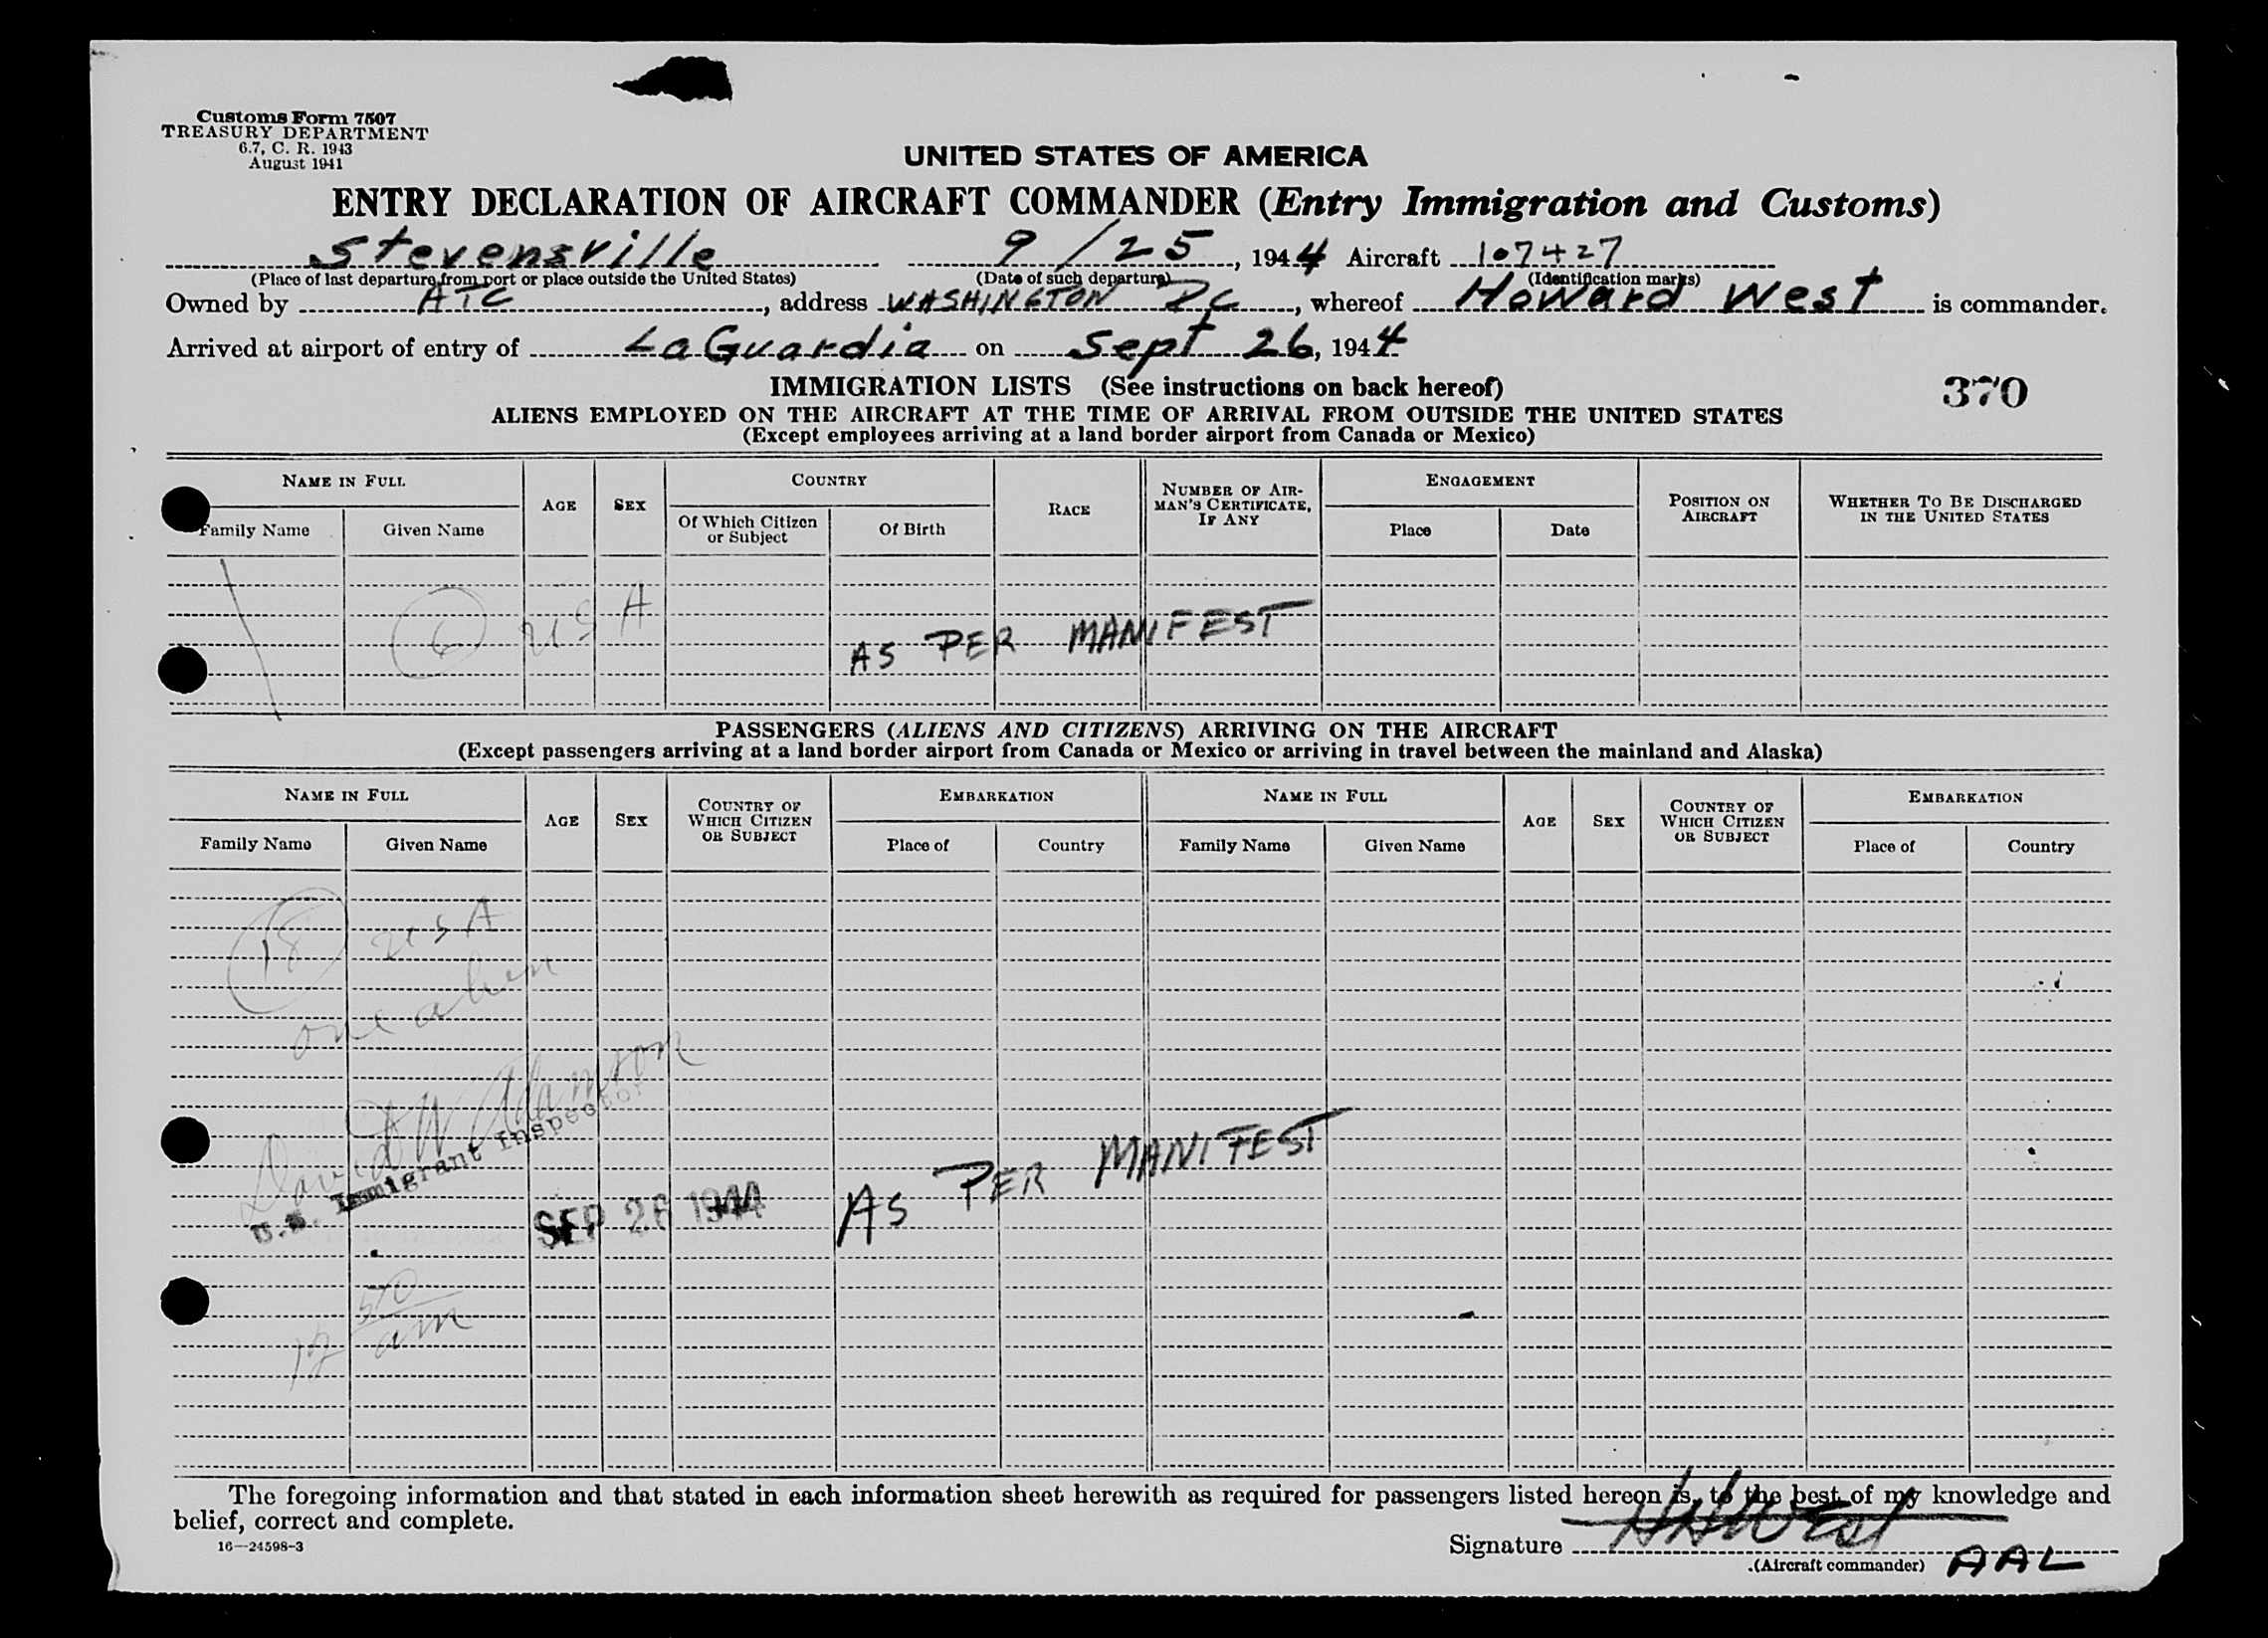 Customs Form 7507
TREASURY DEPARTMENT
6.7, C. R. 1943
August 1941
UNITED STATES OF AMERICA
ENTRY DECLARATION OF AIRCRAFT COMMANDER (Entry Immigration and Customs)
Stevensville 9/25, 1944 Aircraft 107427
(Place of last departure from port or place outside the United States) (Date of such departure) (Identification marks)
Owned by ATC, address WASHINGTON DC, whereof Howard West is commander.
Arrived at airport of entry of LaGuardia on Sept 26, 1944
IMMIGRATION LISTS (See instructions on back hereof)
370
ALIENS EMPLOYED ON THE AIRCRAFT AT THE TIME OF ARRIVAL FROM OUTSIDE THE UNITED STATES
(Except employees arriving at a land border airport from Canada or Mexico)
NAME IN FULL AGE SEX COUNTRY RACE NUMBER OF AIRMAN'S CERTIFICATE, IF ANY ENGAGEMENT POSITION ON AIRCRAFT WHETHER TO BE DISCHARGED IN THE UNITED STATES
Family Name Given Name Of Which Citizen or Subject Of Birth Place Date
6 USA
AS PER MANIFEST
PASSENGERS (ALIENS AND CITIZENS) ARRIVING ON THE AIRCRAFT
(Except passengers arriving at a land border airport from Canada or Mexico or arriving in travel between the mainland and Alaska)
NAME IN FULL AGE SEX COUNTRY OF WHICH CITIZEN OR SUBJECT EMBARKATION NAME IN FULL AGE SEX COUNTRY OF WHICH CITIZEN OR SUBJECT EMBARKATION
Family Name Given Name Place of Country Family Name Given Name Place of Country
18 USA
one alien
David W Adamson
U.S. Immigrant Inspector
SEP 26 1944
AS PER MANIFEST
12 50 am
The foregoing information and that stated in each information sheet herewith as required for passengers listed hereon is, to the best of my knowledge and
belief, correct and complete.
16—24598-3
Signature HHWest
(Aircraft commander) AAL